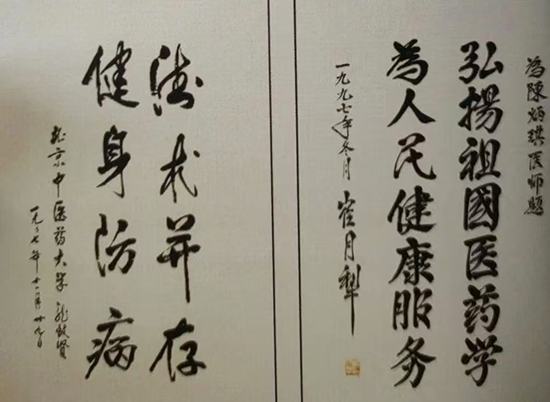 為陳炳琪医师題
弘揚祖國医药学
為人民健康服务
一九九七年冬月 崔月犁
德术并存
健身防病
北京中医药大学 龙致贤
一九九七年十二月廿九日